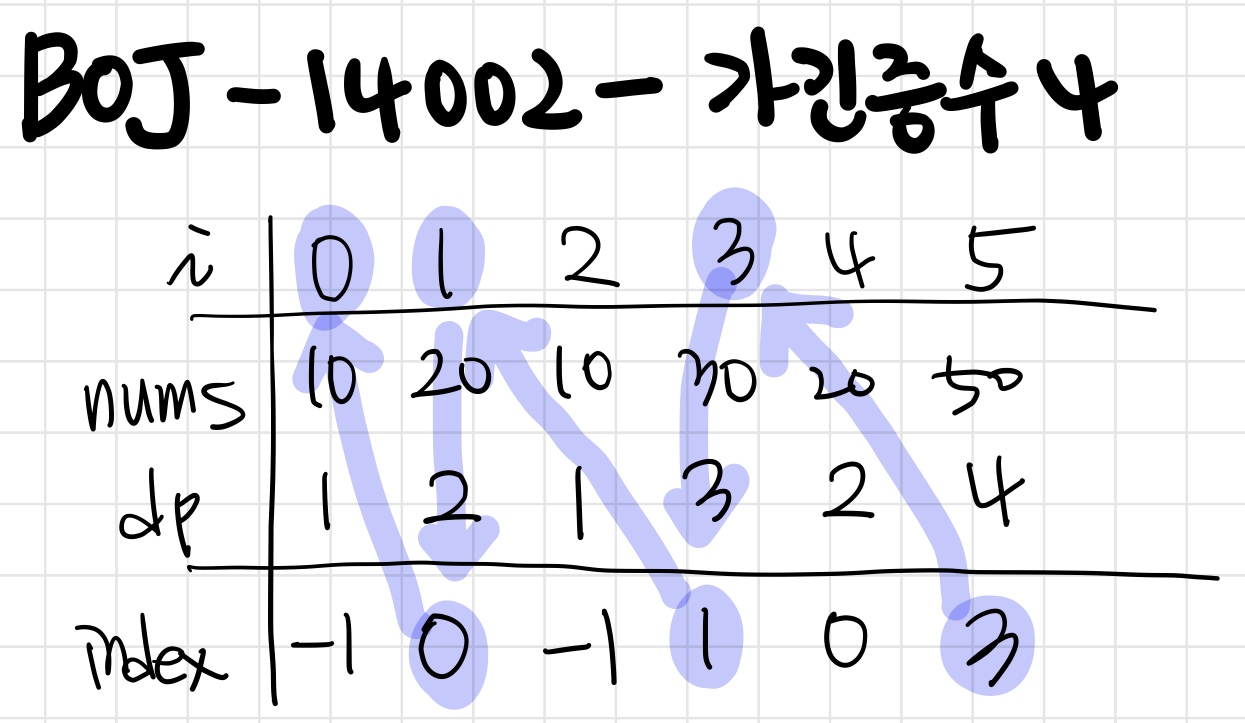 BOJ-14002-가긴증수4
i 0 1 2 3 4 5
nums 10 20 10 30 20 50
dp 1 2 1 3 2 4
index -1 0 -1 1 0 3